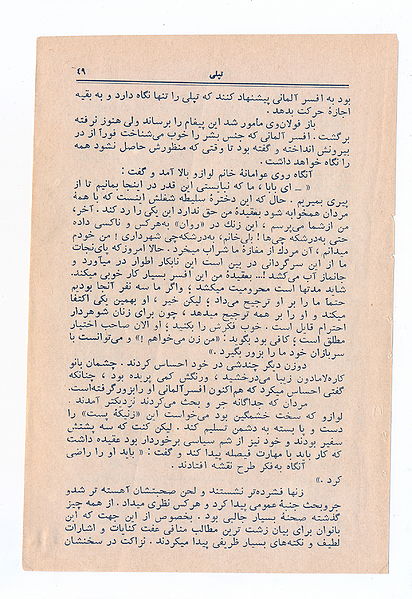 تپلی
۴۹
بود به افسر آلمانی پیشنهاد کنند که تپلی را تنها نگاه دارد و به بقیه
اجازهٔ حرکت بدهد.
باز فولان‌وی مامور شد این پیغام را برساند ولی هنوز نرفته
برگشت. افسر آلمانی که جنس بشر را خوب می‌شناخت فوراً از در
بیرونش انداخته و گفته بود تا وقتی که منظورش حاصل نشود همه
را نگاه خواهد داشت.
آنگاه روی عوامانهٔ خانم لوازو بالا آمد و گفت:
« ـ ای بابا، ما که نبایستی این قدر در اینجا بمانیم تا از
پیری بمیریم. حال که این دخترهٔ سلیطه شغلش اینست که با همهٔ
مردان همخوابه شود بعقیدهٔ من حق ندارد این یکی را رد کند. آخر،
من ازشما می‌پرسم، این زنك در «روان» به‌هرکس و ناکسی داده
حتی به‌درشکه چی‌ها! بلی‌خانم، به‌درشکه‌چی شهرداری! من خودم
میدانم، آن مردك از مغازهٔ ما شراب میخرد. حالا امروز که پای‌نجات
ما از این سرگردانی در بین است این نابکار اطوار در میآورد و
جانماز آب میکشد!... بعقیدهٔ من این افسر بسیار کار خوبی میکند.
شاید مدتها است محرومیت میکشد؛ واگر ما سه نفر آنجا بودیم
حتما ما را بر او ترجیح می‌داد؛ لیکن خیر، او بهمین یکی اکتفا
میکند و او را بر همه ترجیح میدهد، چون برای زنان شوهردار
احترام قایل است. خوب فکرش را بکنید؛ او الان صاحب اختیار
مطلق است؛ کافی بود بگوید: «من زن می‌خواهم!» و می‌توانست با
سربازان خود ما را بزور بگیرد.»
دوزن دیگر چندشی در خود احساس کردند. چشمان بانو
کاره‌لامادون زیبا می‌درخشید، ورنگش کمی پریده بود، چنانکه
گفتی احساس میکرد که هم‌اکنون افسرآلمانی او رابزورگرفته‌است.
مردان که جداگانه جر و بحث می‌کردند نزدیکتر آمدند.
لوازو که سخت خشمگین بود می‌خواست این «زنیکهٔ پست» را
دست و پا بسته به دشمن تسلیم کند. لیکن کنت که سه پشتش
سفیر بودند و خود نیز از شم سیاسی برخوردار بود عقیده داشت
که کار باید با مهارت فیصله پیدا کند و گفت: «باید او را راضی
آنگاه به‌فکر طرح نقشه افتادند.
کرد.»
زنها فشرده‌تر نشستند و لحن صحبتشان آهسته تر شدو
جروبحث جنبهٔ عمومی پیدا کرد و هرکس نظری میداد. از همه چیز
گذشته صحنهٔ بسیار جالبی بود. بخصوص از این جهت که این
بانوان برای بیان زشت ترین مطالب منافی عفت کنایات و اشارات
لطیف و نکته‌های بسیار ظریفی پیدا میکردند. نزاکت در سخنشان